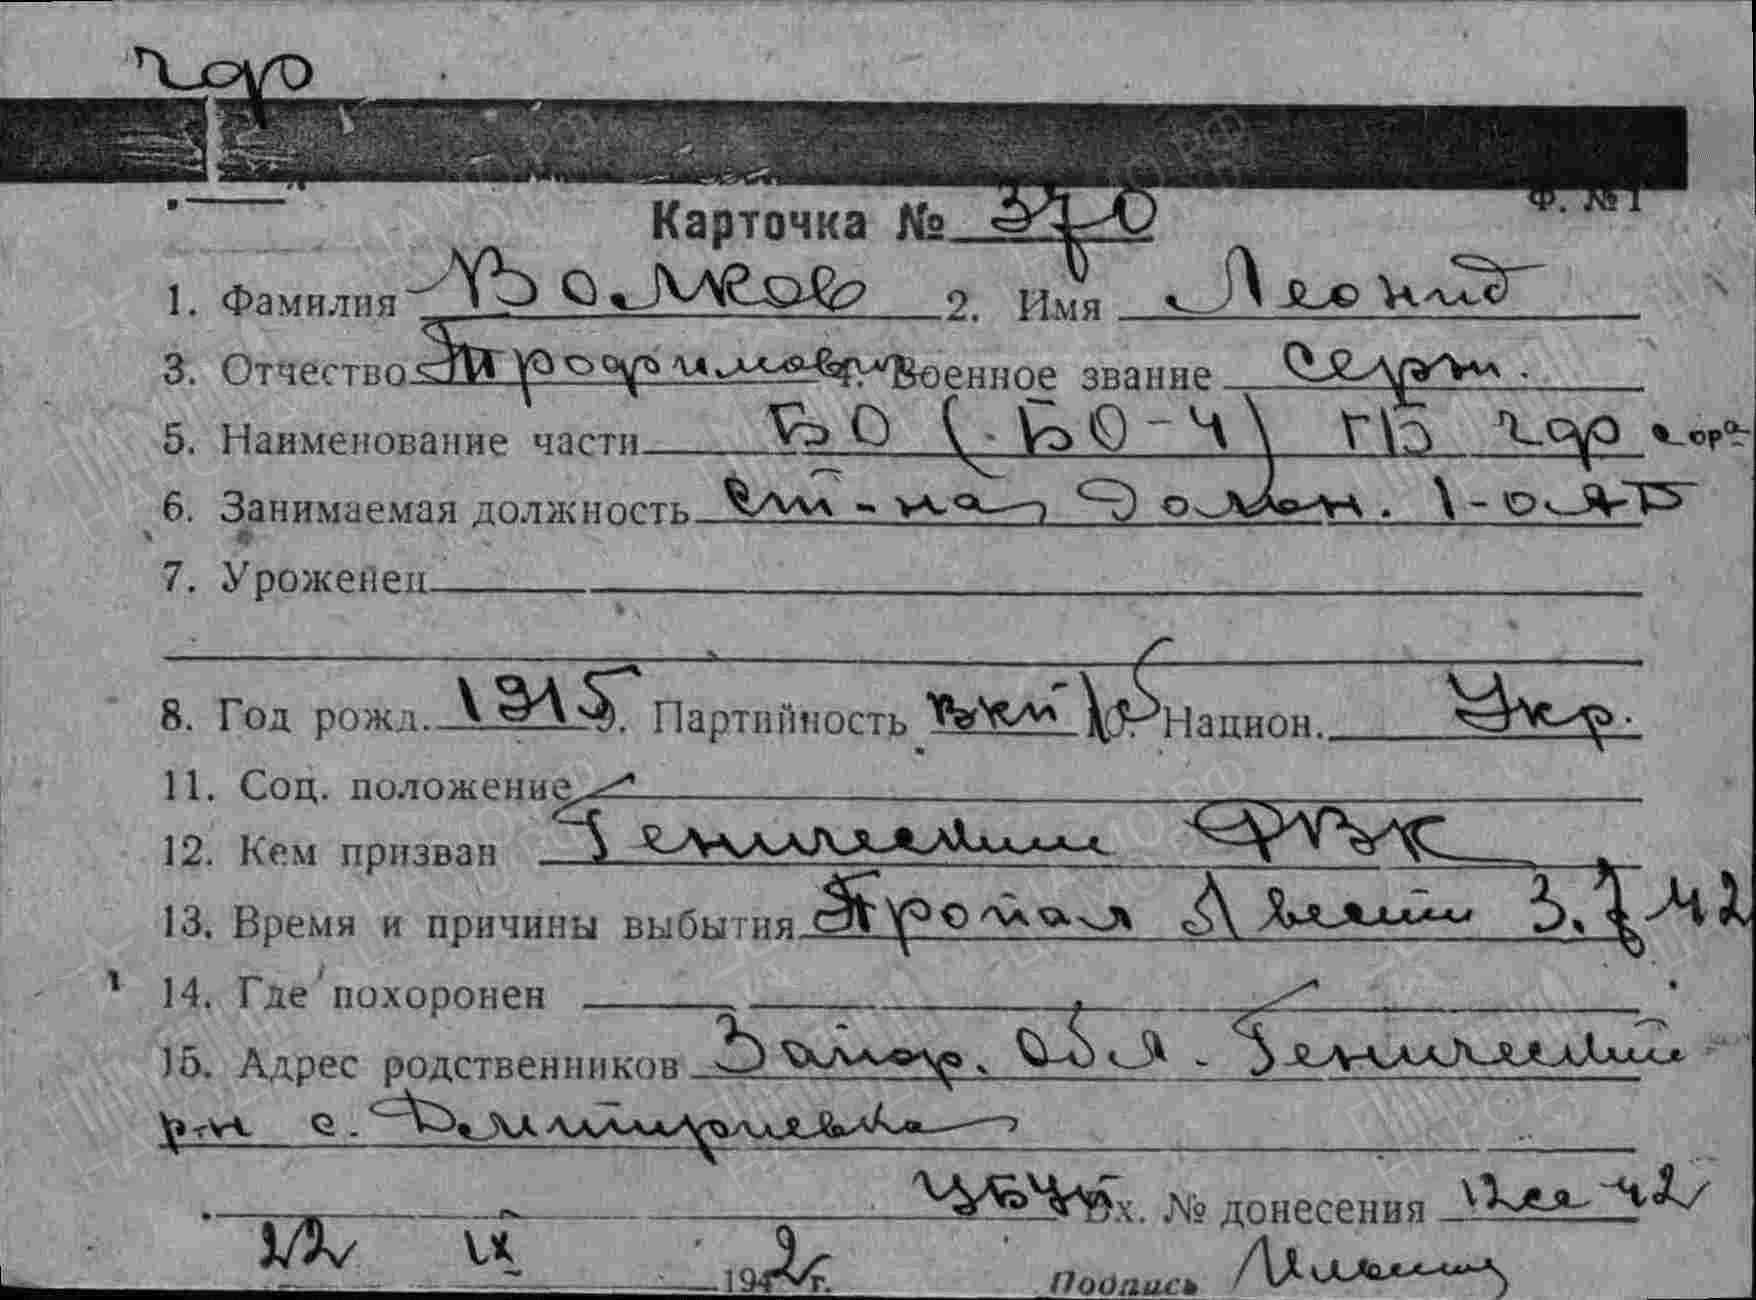 чдр
Ф. №1
Карточка № 370
1. Фамилия Волков 2. Имя Леонид
3. Отчество Трофимович 4. Военное звание серж.
5. Наименование части БО (БО-4) ГБ ЧФ
6. Занимаемая должность ст-на
7. Уроженец
8. Год рожд. 1915 9. Партийность вкп/б Национ. Укр.
11. Соц. положение
12. Кем призван Геническим РВК
13. Время и причины выбытия Пропал б/вести 3.7.42
14. Где похоронен
15. Адрес родственников Запор. обл. Генический
р-н с. Дмитриевка
Вх. № донесения 12сс 42
22 IX 1942 г. Подпись